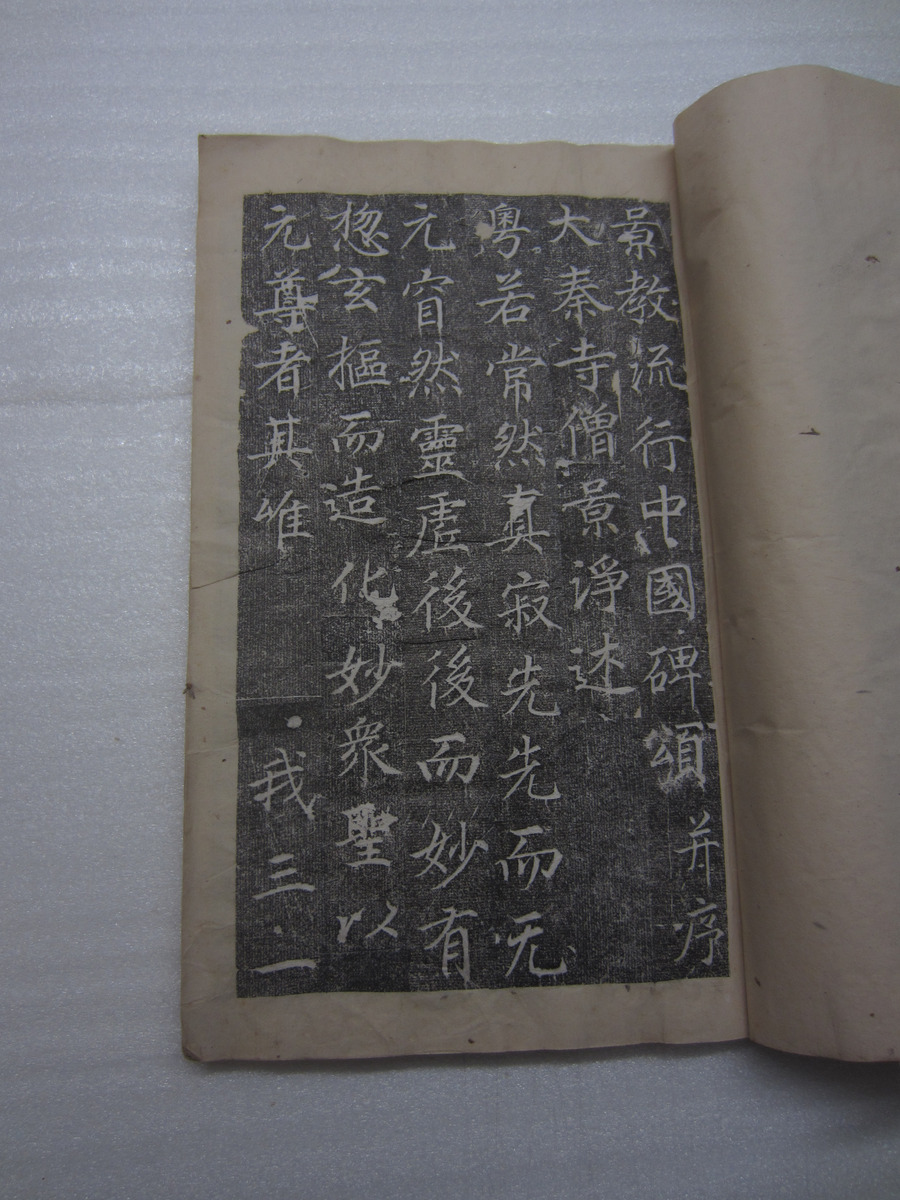 景教流行中國碑頌并序
大秦寺僧景淨述
粵若常然真寂先先而无
元窅然靈虛後後而妙有
惣玄摳而造化妙衆聖以
元尊者其唯我三一